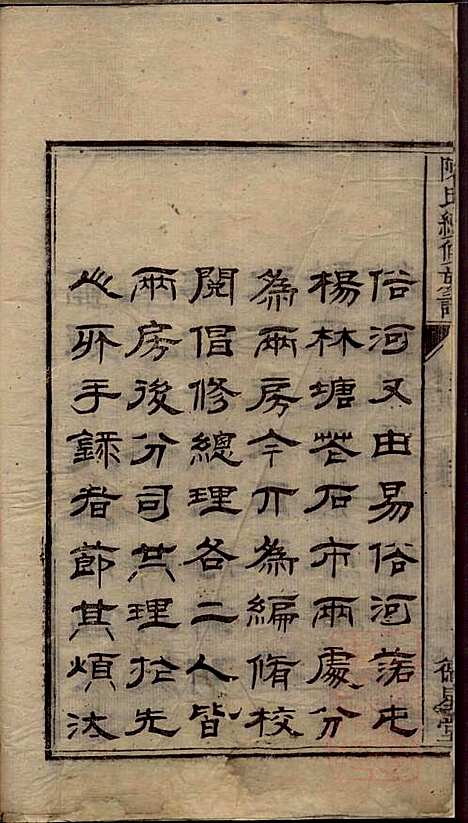 俗河又由易俗河落屯
楊林塘花石市兩處分
為兩房今亦為編脩校
閱倡修總理各二人皆
兩房後分司其理於先
心所手錄者節其煩汰
陳氏續修族譜
德星堂